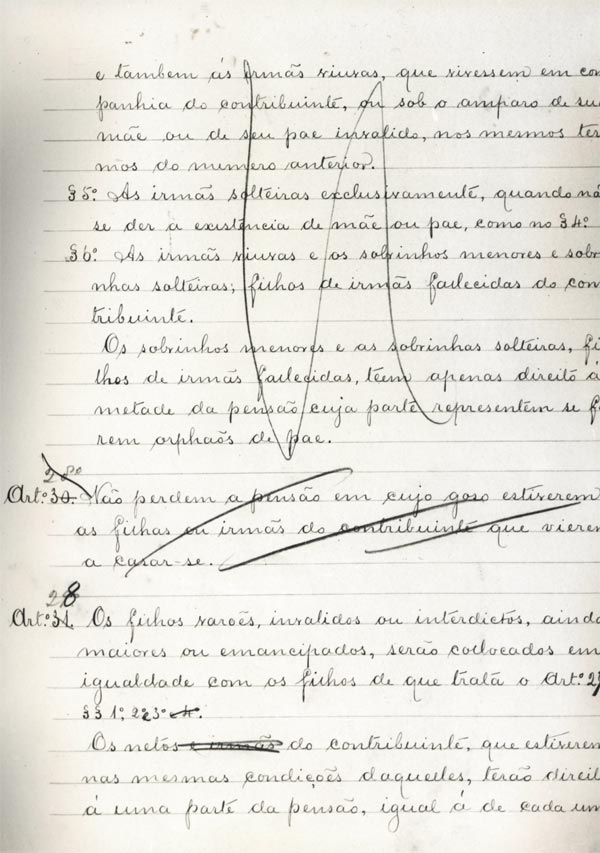 e tambem ás irmãs viuvas, que vivessem em com
panhia do contribuinte, ou sob o amparo de su
mãe ou de seu pae invalido, nos mesmos ter
mos do numero anterior.
§5º As irmãs solteiras exclusivamente, quando nã
se der a existencia de mãe ou pae, como no §4º
§6º As irmãs viuvas e os sobrinhos menores e sobri
nhas solteiras; filhos de irmãs fallecidas do con
tribuinte.
Os sobrinhos menores e as sobrinhas solteiras, fi
lhos de irmãs fallecidas, teem apenas direito á
metade da pensão cuja parte representem se fo
rem orphaõs de pae.
Art.º 30. Não perdem a pensão em cujo goso estiverem
as filhas ou irmãs do contribuinte que vieren
a casar-se.
28
Art.º 31. Os filhos varoẽs, invalidos ou interdictos, ainda
maiores ou emancipados, serão collocados em
igualdade com os filhos de que trata o Art.º 27
§§ 1º, 2 e 3º 4.
Os netos e irmãs do contribuinte, que estiverem
nas mesmas condiçoẽs daquelles, terão direit
á uma parte da pensão, igual á de cada um